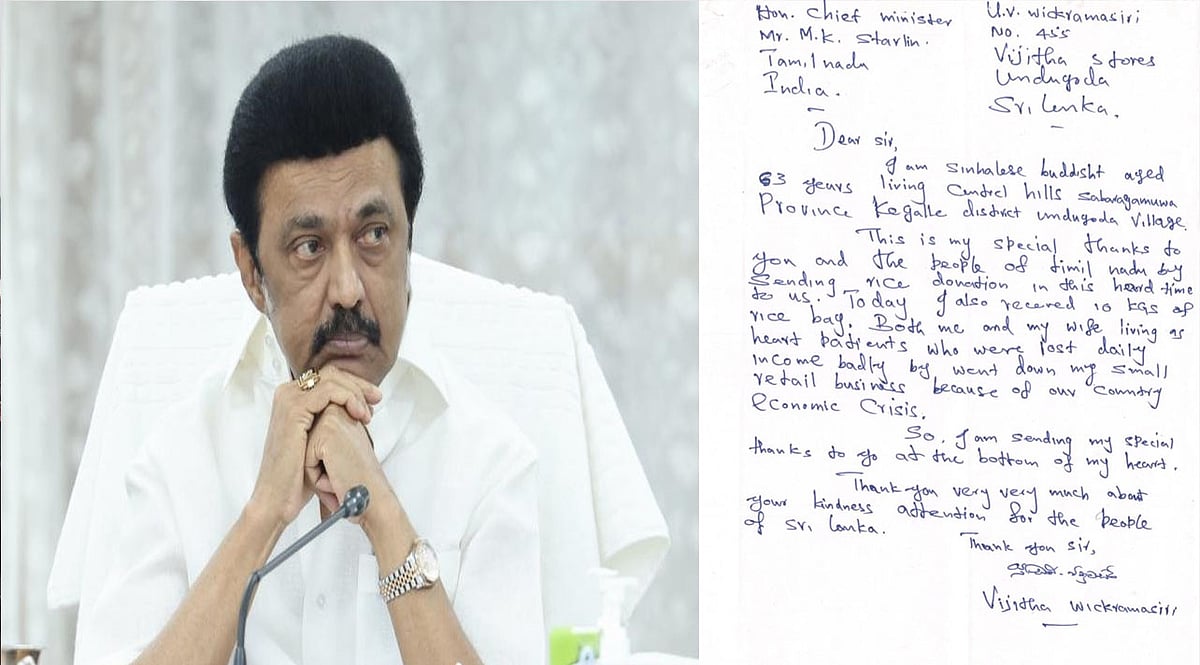 Hon. Chief minister
Mr. M.K. Starlin.
Tamilnadu
India.
U.V. Wickramasiri
No. 455
Vijitha stores
Undugoda
Sri Lanka.
Dear sir,
I am Sinhalese buddisht aged
63 years living Centrel hills Sabaragamuwa
Province Kegalle district undugoda Village.
This is my special thanks to
you and the people of timil nadu by
Sending rice donation in this heard time
to us. Today I also recered 10 KGS of
rice bag. Both me and my wife living as
heart patients who were lost daily
income badly by went down my small
retail business because of our Country
Economic Crisis.
So. I am sending my special
thanks to yo at the bottom of my heart.
Thank you very very much about
your kindness attention for the people
of Sri Lanka.
Thank you Sir,
Vijitha Wickramasiri